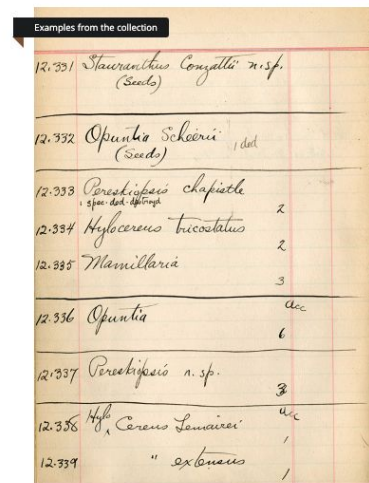 Examples from the collection
12.331 Stauranthus Conzattii n.sp.
(Seeds)
12.332 Opuntia Scheerii 1 ded
(Seeds)
12.333 Pereskiopsis chapistle
1 spec. ded. destroyd 2
12.334 Hylocereus tricostatus
2
12.335 Mamillaria
3
12.336 Opuntia acc
6
12.337 Pereskiopsis n.sp.
3
12.338 Hylo Cereus Lemairei acc
1
12.339 " extensus
1